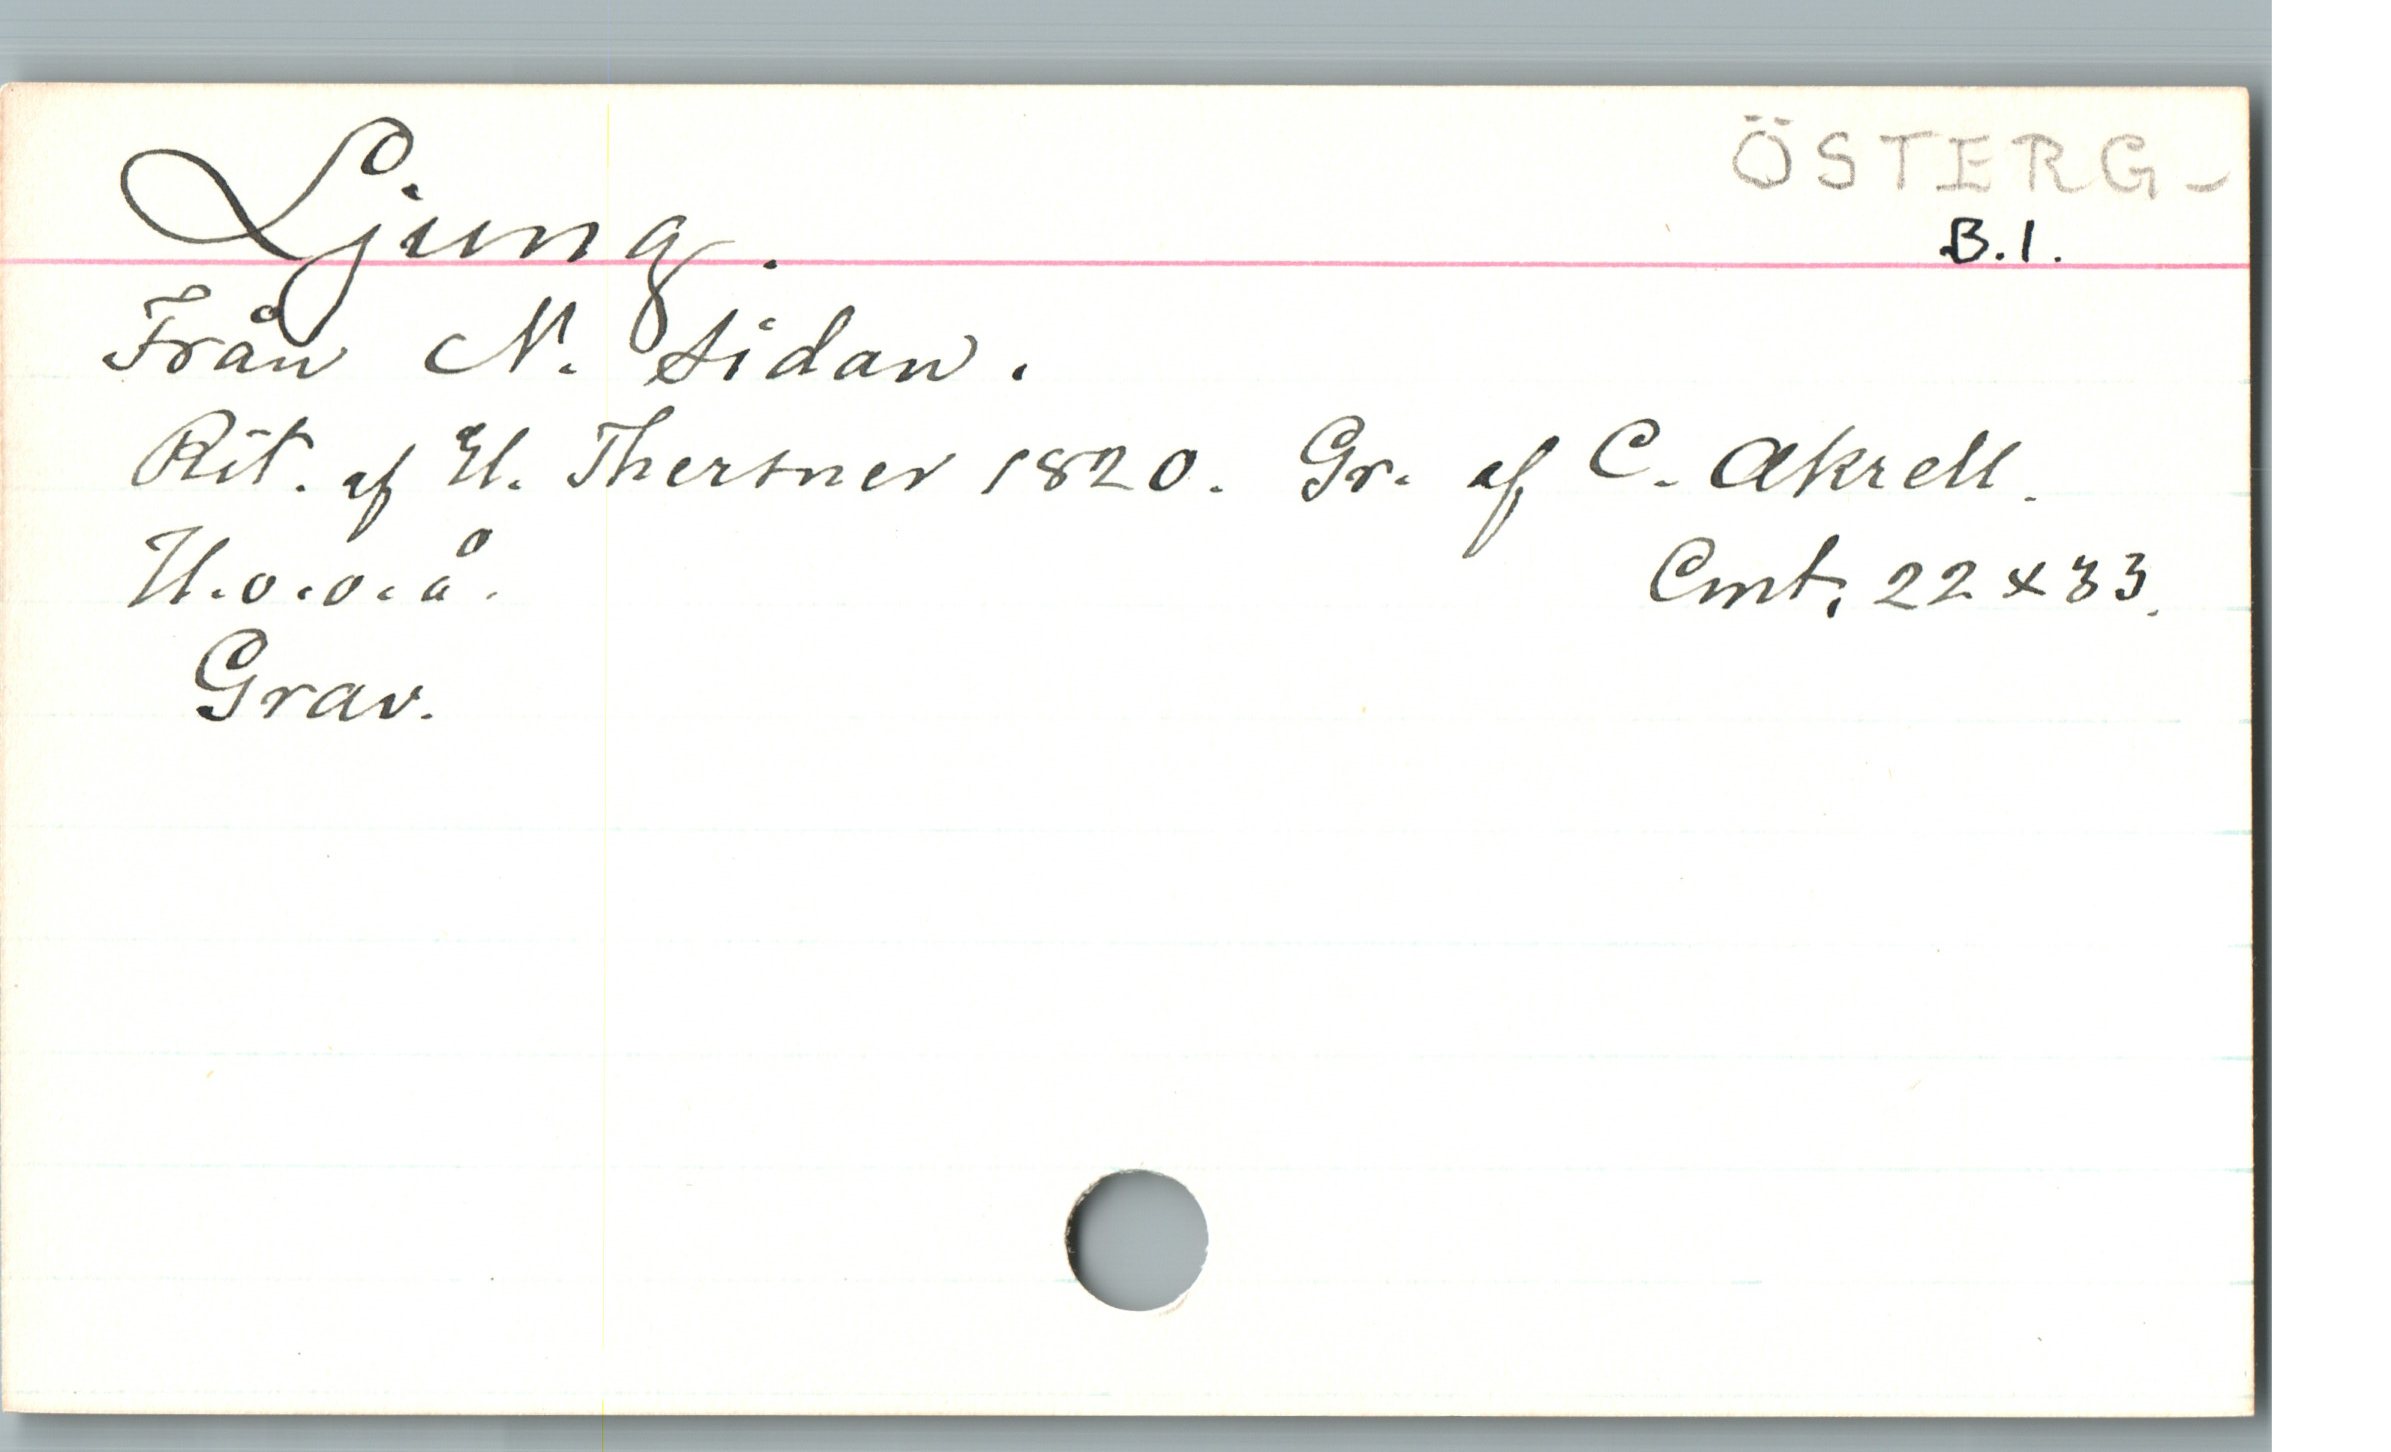 ÖSTERG-
Ljung.
B.1.
Från N. sidan.
Rit. af U. Thersner 1820. Gr. af C. Akrell.
U.o.o.å. Cmt. 22 x 33.
Grav.